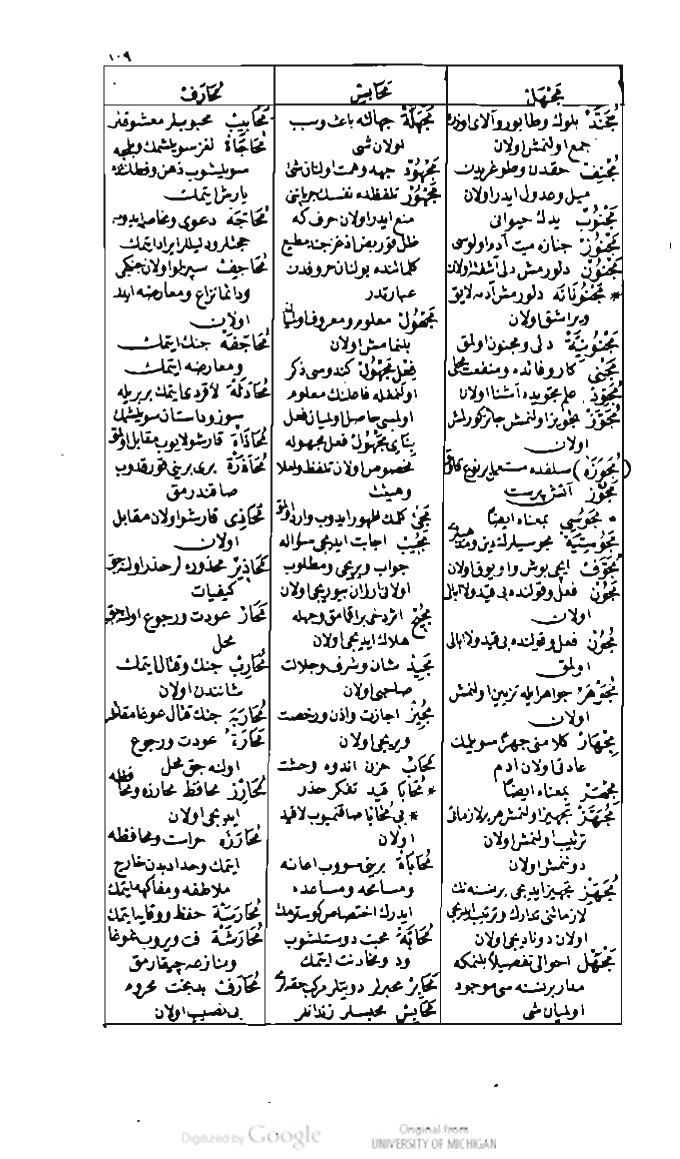 ١٠٩
مجهل
محابس
محارف
مُجَنَّد بلوك وطابور وآلاى اوزره
جمع اولنمش اولان
مُجْنِف حقدن وطوغريدن
ميل وعدول ايدر اولان
مَجْنُوب يدك حيوانى
مَجْنُوز جنازه ميت آدم اولوسى
مَجْنُون دلورمش دلى آشفته اولان
* مَجْنُونَانَه دلورمش آدمه لايق
وبراشق اولان
مَجْنُونِيَّة دلى ومجنون اولمق
مَجْنَى كار وفائده ومنفعت محلى
مُجَوِّد علم تجويده آشنا اولان
مُجَوَّز تجويز اولنمش جائز كورلمش
اولان
(مُجَوَّزَه) سلفده مستعمل برنوع قاوق
مَجُوز آتش پرست
* مَجُوسِى بمعناه ايضًا
مَجُوسِيَّة مجوسيلرك دين ومذهبى
مُجَوَّف ايچى بوش واويوق اولان
مَجُون فعل وقولنده بى قيد ولا ابالى
اولان
مُجُون فعل وقولنده بى قيد ولا ابالى
اولمق
مُجَوْهَر جواهر ايله تزيين اولنمش
اولان
مِجْهَار كلامنى جهرًا سويلمك
عادتى اولان ادم
مِجْهَر بمعناه ايضًا
مُجَهَّز تجهيز اولنمش هر بر لازماتى
ترتيب اولنمش اولان
دونمش اولان
مُجَهِّز تجهيز ايديجى برنسنه نك
لازماتنى تدارك وترتيب ايديجى
اولان دوناديجى اولان
مَجْهَل احوالى تفصيلاً بلنمكه
مدار برنسنه سى موجود
اولميان شى
مَجْهَلَة جهالته باعث وسبب
اولان شى
مَجْهُود جهد وهمت اولنان شى
مَجْهُور تلفظنده نفسك جرياننى
منع ايدر اولان حرف كه
ظل قور بض اذ غز جند مطيع
كلماتنده بولنان حروفدن
عبارتدر
مَجْهُول معلوم ومعروف اولميان
بلنمامش اولان
فِعْل مَجْهُول كندوسى ذكر
اولنفله فاعلنك معلوم
اولمسى حاصل اولميان فعل
بِنَاى مَجْهُول فعل مجهوله
مخصوص اولان تلفظ واملا
وهيئت
مَجِئ كلمك ظهور ايدوب وارد اولمق
مُجِيب اجابت ايديجى سؤاله
جواب ويريجى ومطلوب
اولانى ارزان بيوريجى اولان
مُجِيح اثر دخى براقمامق وجهله
هلاك ايديجى اولان
مَجِيد شان وشرف وجلالت
صاحبى اولان
مُجِيز اجازت واذن ورخصت
ويريجى اولان
مَحَاب حزن اندوه وحشت
* مُحَابَا قيد تفكر حذر
* بى مُحَابَا صاقنميوب لاقيد
اولان
مُحَابَاة برينى سووب اعانه
ومسامحه ومساعده
ايدرك اختصاص كوسترمك
مُحَابَّة محبت دوستلشوب
ود ومخادنت ايتمك
مَحَابِر محبرلر دويتلر مركب حقه لرى
مَحَابِس محبسلر زندانلر
مَحَابِيب محبوبلر معشوقلر
مُحَاجَاة لغز سويلشمك وبلمجه
سويليشوب ذهن وفطانتده
يارش ايتمك
مُحَاجَّة دعوى ومخاصمه ايدوب
حجتلر ودليللر ايراد ايتمك
مُحَاجِف سپرلو اولان جنكى
ودائما نزاع ومعارضه ايدر
اولان
مُحَاجَفَة جنك ايتمك
ومعارضه ايتمك
مُحَادَثَة لاقردى ايتمك بربريله
سوز وداستان سويلشمك
مُحَاذَاة قارشولايوب مقابل اولمق
مُحَاذَرَة برى برينى قورقدوب
صاقندرمق
مُحَاذِى قارشو اولان مقابل
اولان
مَحَاذِير محذورلر حذر اولنه جق
كيفيات
مَحَار عودت ورجوع اولنه جق
محل
مُحَارِب جنك وقتال ايتمك
شانندن اولان
مُحَارَبَة جنك قتال غوغا مقاتله
مَحَارَة عودت ورجوع
اولنه جق محل
مُحَارِز محافظ محارزه ومحافظه
ايديجى اولان
مُحَارَزَة حراست ومحافظه
ايتمك وحد ادبدن خارج
ملاطفه ومفاكهه ايتمك
مُحَارَسَة حفظ ووقايه ايتمك
مُحَارَشَة فت ويروب غوغا
ومنازعه چيقارمق
مُحَارَف بدبخت محروم
بى نصيب اولان
Digitized by Google
Original from
UNIVERSITY OF MICHIGAN